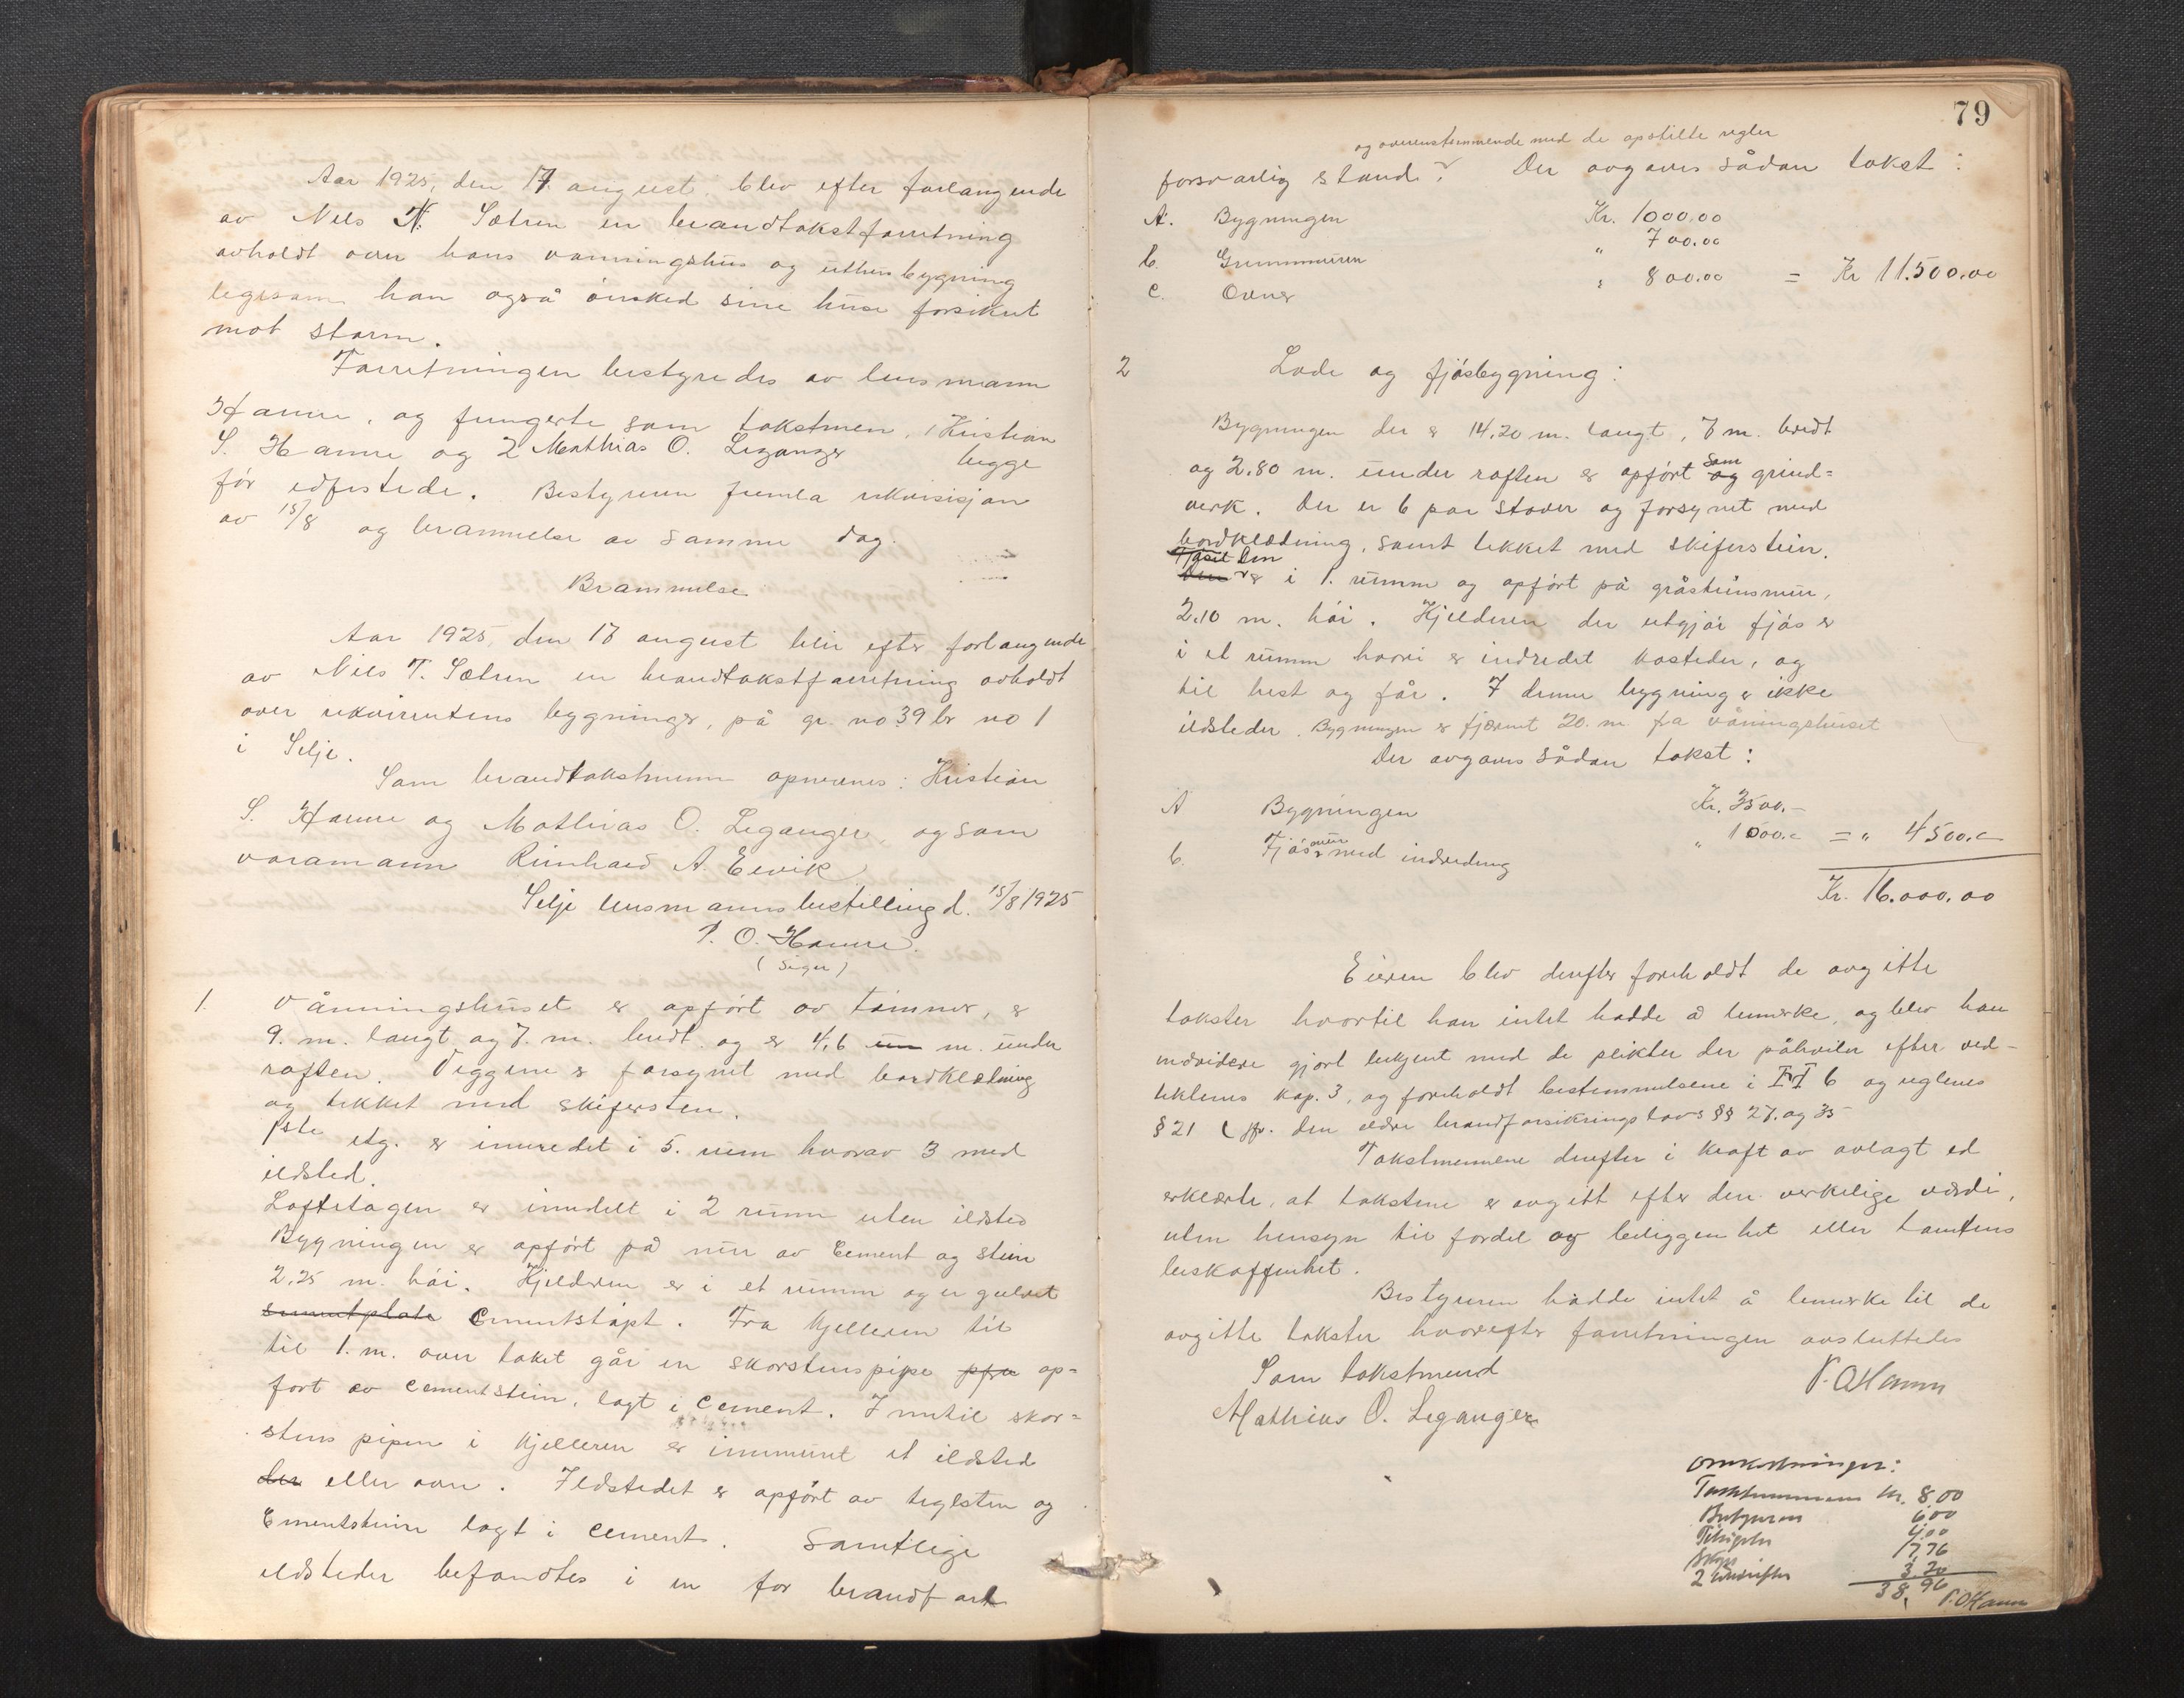 Aar 1925, den 17 august, blev efter forlangende
av Nils N. Sætren en brandtakstforretning
avholdt over hans vanningshus og uthusbygning
legesom han også ønsked sine huse forsikret
mot storm.
Forretningen bestyredes av lensmann
Hamre, og fungerte som takstmen, 1 Kristian
S. Hamre og 2 Mathias O. Leganger begge
før edfestede. Bestyreren fremla rekvisisjon
av 15/8 og brammelse av samme dag.
Brammelse
Aar 1925, den 17 august blir efter forlangende
av Nils T. Sætren en brandtakstforretning avholdt
over rekvirentens bygninger, på gr. no 39 br no 1
i Selje.
Som brandtakstmenn opnevnes: Kristian
S. Hamre og Mathias O. Leganger, og som
varamann Reinhard A. Ervik
Selje lensmannsbestilling d. 15/8 1925
P. O. Hamre.
(Sign)
1. Vånningshuset er opført av tømmer, er
9. m. langt og 7. m. bredt og er 4,6 m. under
raften. Veggene er forsynet med bordklædning
og tekket med skifersten.
1ste etg. er innredet i 5. rum hvorav 3 med
ildsted.
Loftetagen er inndelt i 2 rumm uten ildsted
Bygningen er opført på mur av Cement og stein
2,25 m. høi. Kjelderen er i et rumm og er gulvet
sementplate Cementstøpt. Fra kjelleren til
til 1. m. over taket går en skorstenspipe op=
ført av cementstein, lagt i cement. Inntil skor=
stens pipen i kjelleren er innmuret et ildsted
der eller ovn. Ildstedet er opført av teglsten og
Cementsteine lagt i cement. Samtlige
ildsteder befandtes i en for brandfare
79
og overenstemmende med de opstilte regler
forsvarlig stand. Der avgaves sådan takst:
A. Bygningen Kr. 10000.00
b. Grunnmuren " 700.00
c. Ovner " 800.00 = Kr 11.500,00
2 Lade og fjøsbygning:
Bygningen der er 14,20 m. langt, 7 m. bredt
og 2,80 m. under raften er opført som og grind=
verk. Der er 6 par staver og forsynet med
bordklædning, samt tekket med skiferstein.
Huset Den er i 1. rumm og opført på gråsteinsmur,
2.10 m. høi. Kjelderen der utgjør fjøs er
i et rumm hvori er indredet båsteder, og
til hest og får. I denne bygning er ikke
ildsteder. Bygningen er fjærnet 20. m. fra våningshuset
Der avgaves sådan takst:
A Bygningen Kr. 3500.-
b. Fjøsmur med indredning " 1000.- = " 4500.-
Kr. 16.000,00
Eieren blev derefter foreholdt de avgitte
takster hvortil han intet hadde å bemerke, og blev han
endvidere gjort bekjent med de plikter der påhviler efter ved-
tektenes kap. 3, og foreholdt bestemmelsene i 6 og reglenes
§ 21 (jfr. den eldre brandforsikringslovs §§ 27. og 35
Takstmennene derefter i kraft av avlagt ed
erklærte, at takstene er avgitt efter den verkelige værdi,
uten hensyn til fordel av beliggenhet eller tomtens
beskaffenhet.
Bestyreren hadde intet å bemerke til de
avgitte takster hvorefter forretningen avsluttedes
Som takstmend P. O Hamre
Mathias O. Leganger
Omkostninger:
Takstmennene kr. 8,00
Bestyreren 6,00
4,00
Skyss 17,76
2 utskrifter 3,20
38,96 P. O Hamre